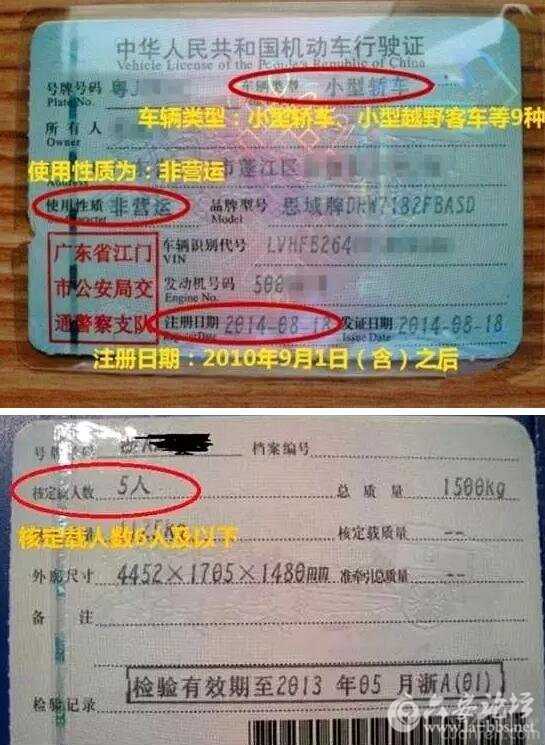 中华人民共和国机动车行驶证
Vehicle License of the People's Republic of China
号牌号码 粤J 车辆类型 小型轿车
Plate No.
车辆类型：小型轿车、小型越野客车等9种
所有人
Owner
使用性质为：非营运
市蓬江区
Address
使用性质 非营运 品牌型号 思域牌DHW7182FBASD
Character Model
广东省江门
市公安局交
通警察支队
车辆识别代号 LVHFB264
VIN
发动机号码 500
Engine No.
注册日期 2014-08-18 发证日期 2014-08-18
Register Date Issue Date
注册日期：2010年9月1日（含）之后
号牌号码 档案编号
核定载人数 5人 总质量 1500kg
核定载人数6人及以下
核定载质量 --
外廓尺寸 4452×1705×1480mm 准牵引总质量 --
备注
检验记录 检验有效期至2013年05月浙A(01)
六安论坛
www.larbbs.net